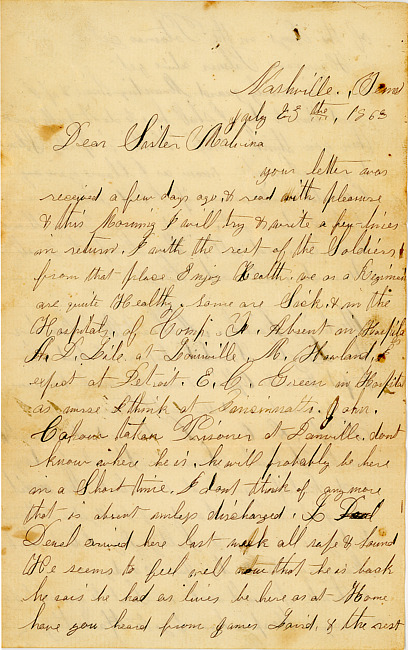 Nashville, Tenn
July 23th, 1863
Dear Sister Malvina
your letter was
received a few days ago, & read with pleasure
& this Morning I will try & write a few lines
in return. I with the rest of the Soldiers
from that place Enjoy Health. we as a Regiment
are quite Healthy, some are Sick & in the
Hospitals, of Comp. Absent in Hospital
A. D. at Louisville, M. Howland, I
expect at Detroit. E. C. Green in Hospital
as nurse I think at John.
taken Prisoner at Danville. dont
know where he is. he will probably be here
in a Short time. I dont think of any more
that is absent unless discharged.
Deuel arrived here last week all safe & sound
He seems to feel well now that he is back
he sais he had as lives be here as at Home
have you heard from James Laird, & the rest